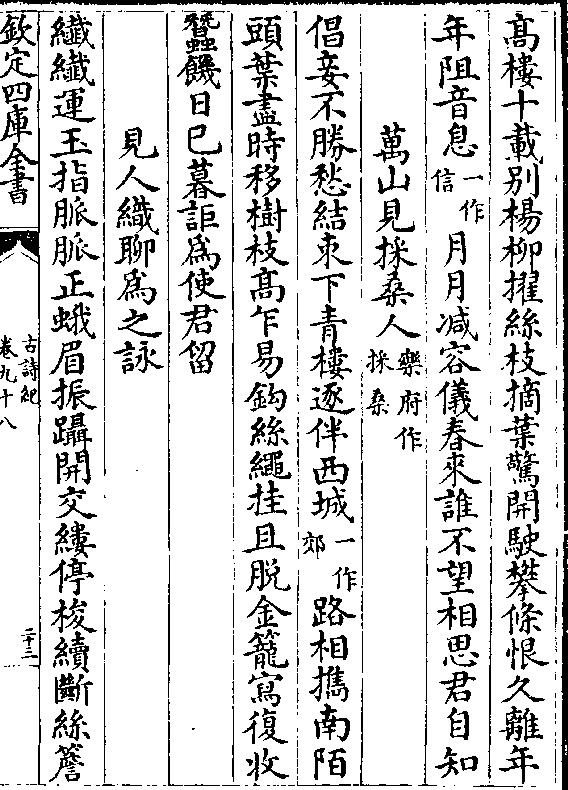 髙樓十載别楊柳擢絲枝摘葉驚開駛攀條恨久離年
年阻音息一作信月月減容儀春來誰不望相思君自知
萬山見採桑人樂府作採桑
倡妾不勝愁結束下青樓逐伴西城一作郊路相攜南陌
頭葉盡時移樹枝髙乍易鈎絲繩挂且脱金籠寫復收
蠶饑日已暮詎為使君留
見人織聊為之詠
纎纎運玉指脈脈正蛾眉振躡開交縷停梭續斷絲簷
欽定四庫全書
古詩紀
卷九十八
二十三